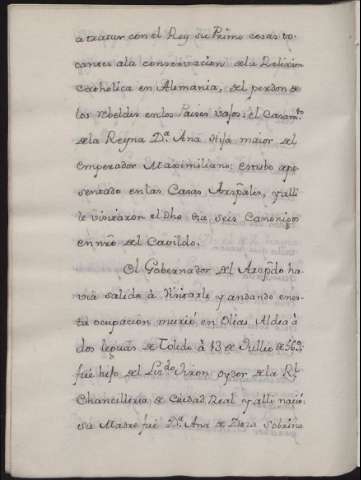 a tratar con el Rey su Primo cosas to-
cantes ala conservacion de la Relixion
Catholica en Alemania, del perdon de
los rebeldes en los Paises vajos, el Casam.to
de la Reyna D.a Ana hija maior del
emperador Maximiliano: estubo apo-
sentado en las Casas Arzpales, y alli
le visitaron el dho dia seis Canonigos
en nre del Cavildo.
El Gobernador del Arzpdo ha-
via salido à Visitarle y andando en es-
ta ocupacion murió en Olias Aldea à
dos leguas de Toledo à 13 de Jullio de 563
fué hijo del Liz.do Jiron oydor de la R.l
Chancilleria de Ciudad Real y alli nació
su Madre fué D.a Ana de sobrina